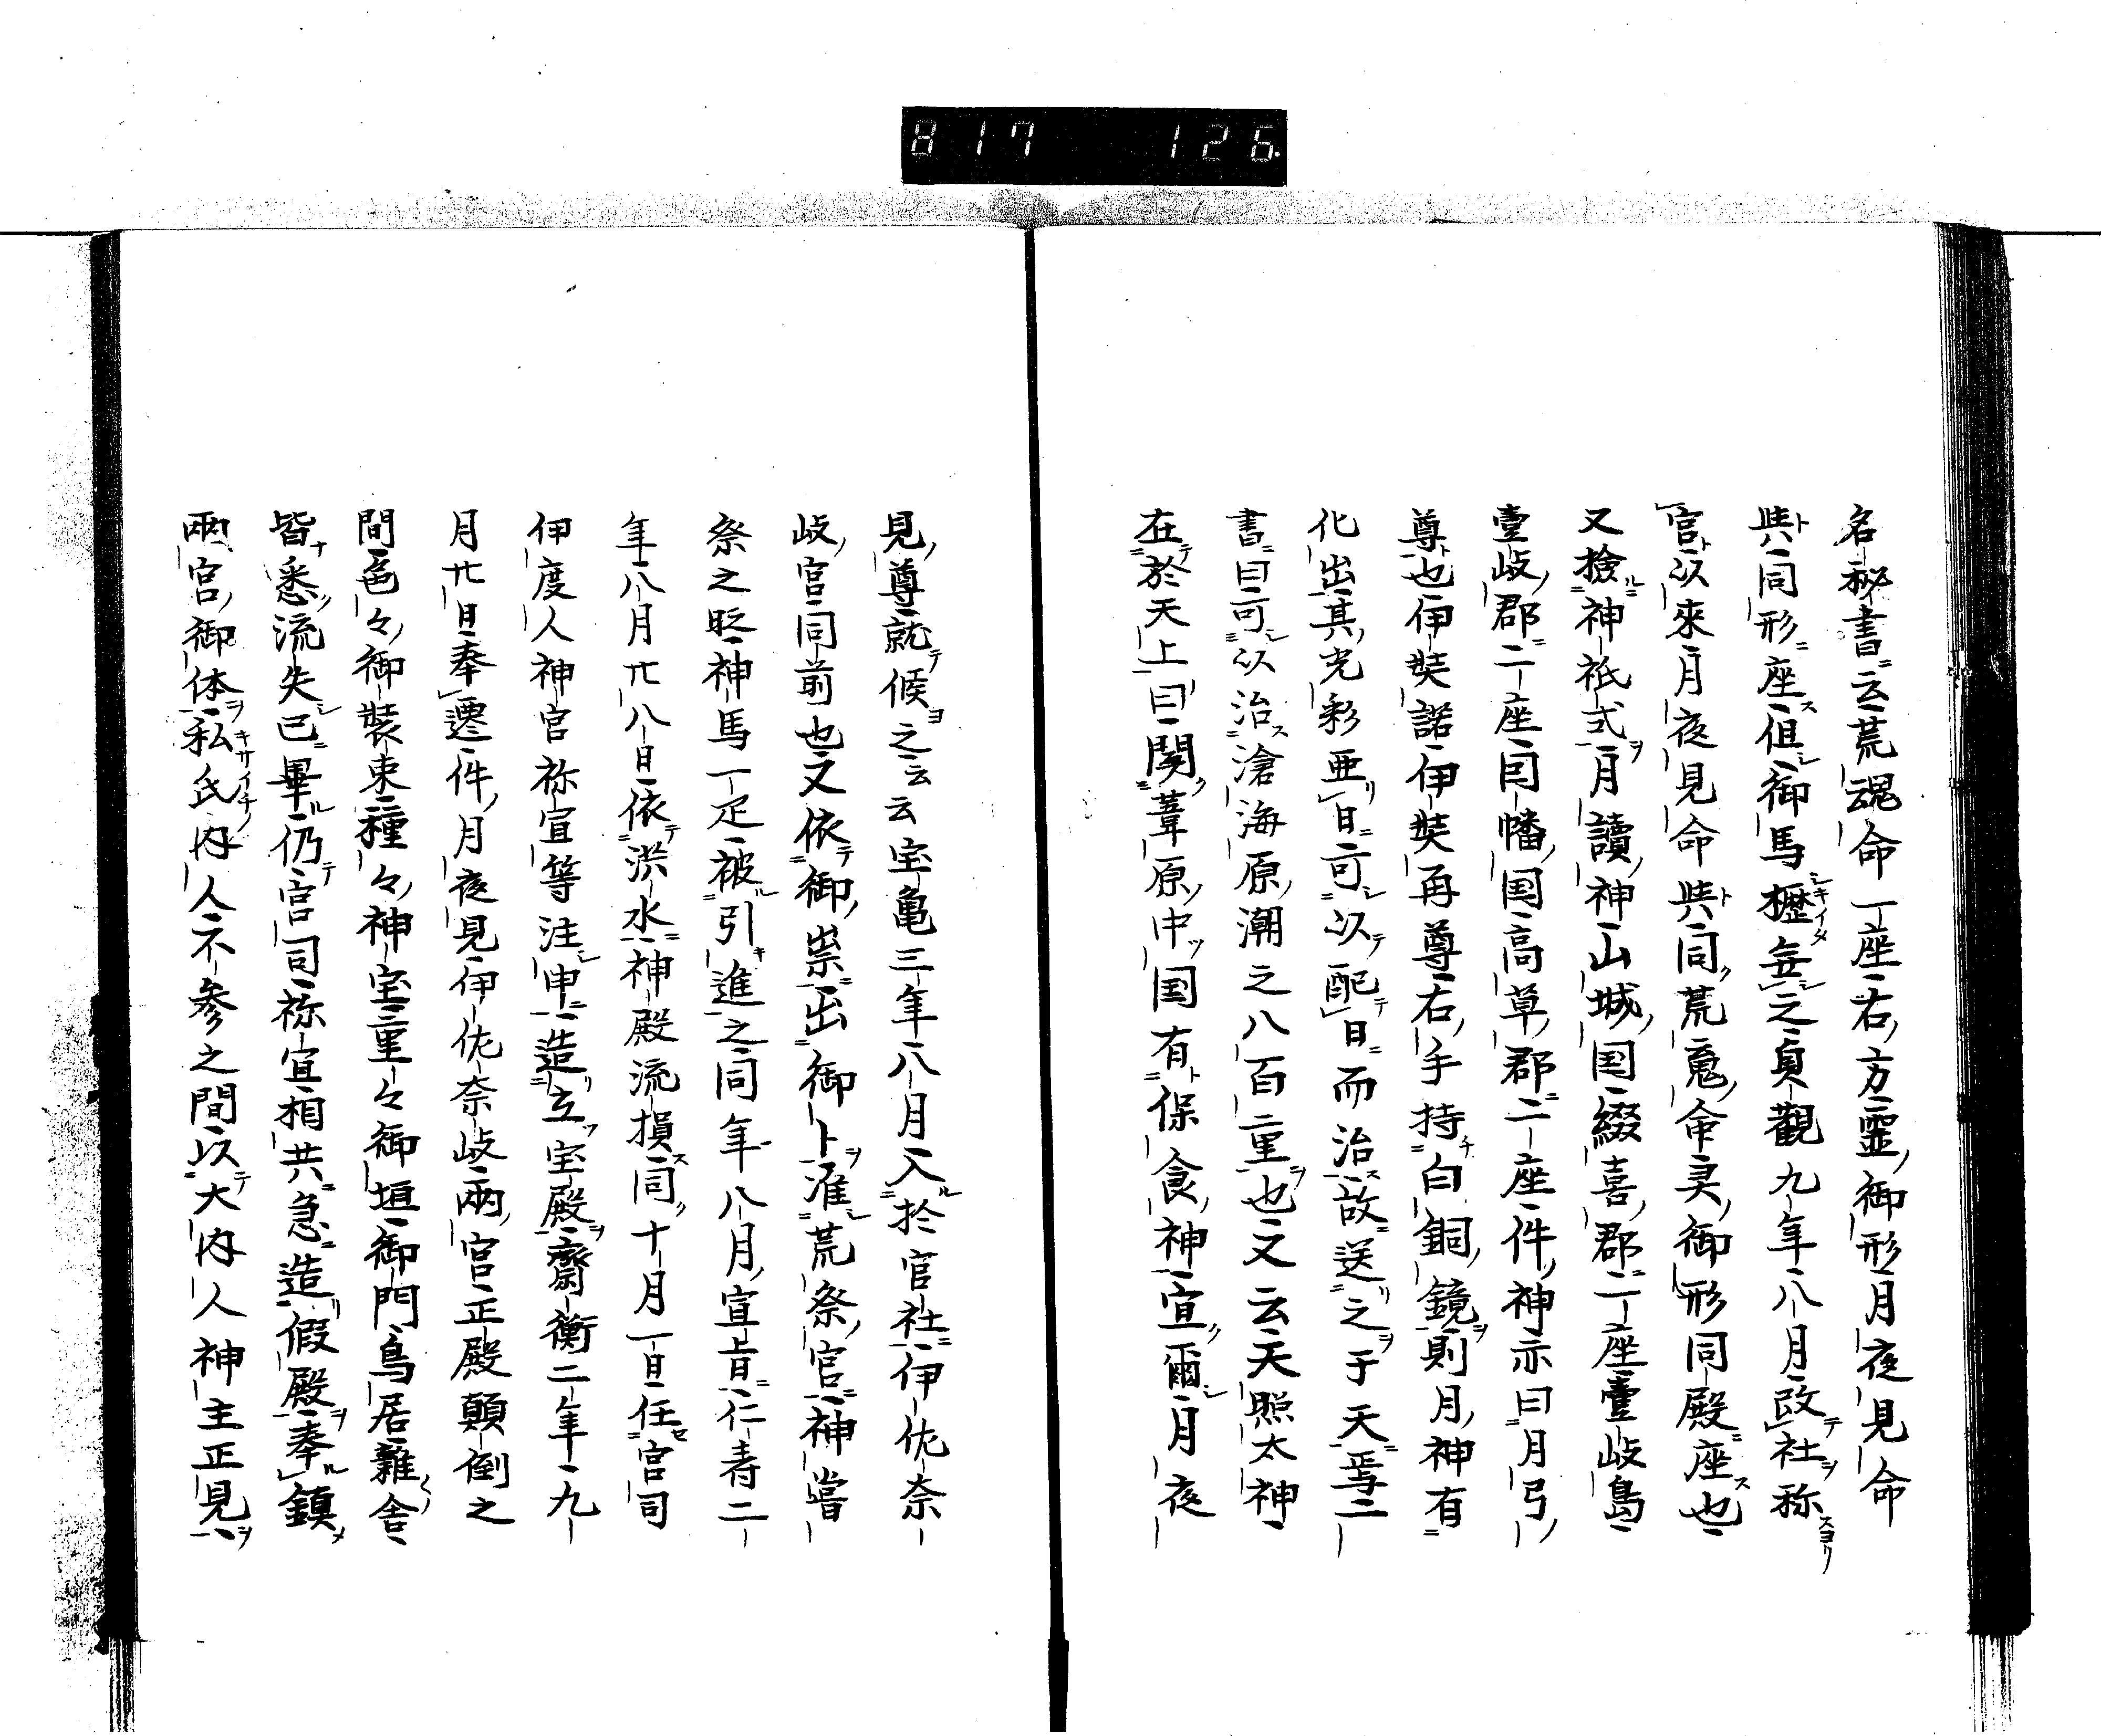 817 126.
名秘書云荒魂命一座右方霊御形月夜見命
與同形座但御馬櫪無之貞観九年八月改社称
宮以來月夜見命與同荒魂命矣御形同殿座也
又撿神祇式月讀神山城国綴喜郡二座壹岐島
壹岐郡二座因幡国高草郡二座件神亦曰月弓
尊也伊弉諾伊弉再尊右手持白銅鏡則月神有
化出其光彩亜日可以配日而治故送之于天焉二
書曰可以治滄海原潮之八百重也又云天照太神
在於天上曰聞葦原中国有保食神宣爾月夜
見尊就候之云云宝亀三年八月入於官社伊佐奈
岐宮同前也又依御祟出御卜准荒祭宮神嘗
祭之時神馬一疋被引進之同年八月宣旨仁寿二
年八月廿八日依洪水神殿流損同十月一日任宮司
伊度人神宮祢宜等注申造立宝殿齋衡二年九
月廿日奉遷件月夜見伊佐奈岐兩宮正殿顛倒之
間色々御装束種々神宝重々御垣御門鳥居雜舎
皆悉流失已畢仍宮司祢宜相共急造假殿奉鎮
兩宮御体私氏内人不参之間以大内人神主正見